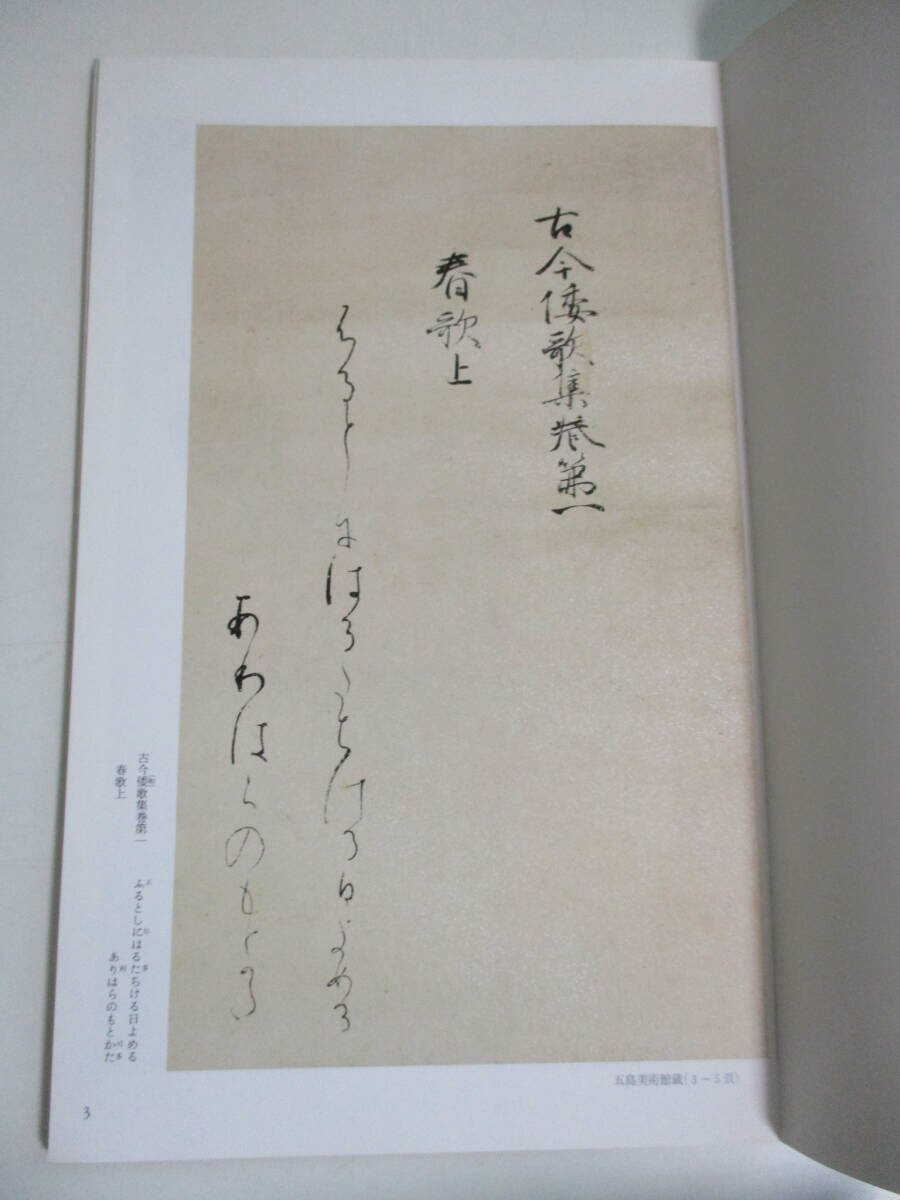 古今倭歌集巻第一
春歌上
ふるとしにはるたちける日よめる
ありはらのもとかた
五島美術館蔵(3〜5頁)
古今倭歌集巻第一
春歌上
ふるとしにはるたちける日よめる
ありはらのもとかた
3